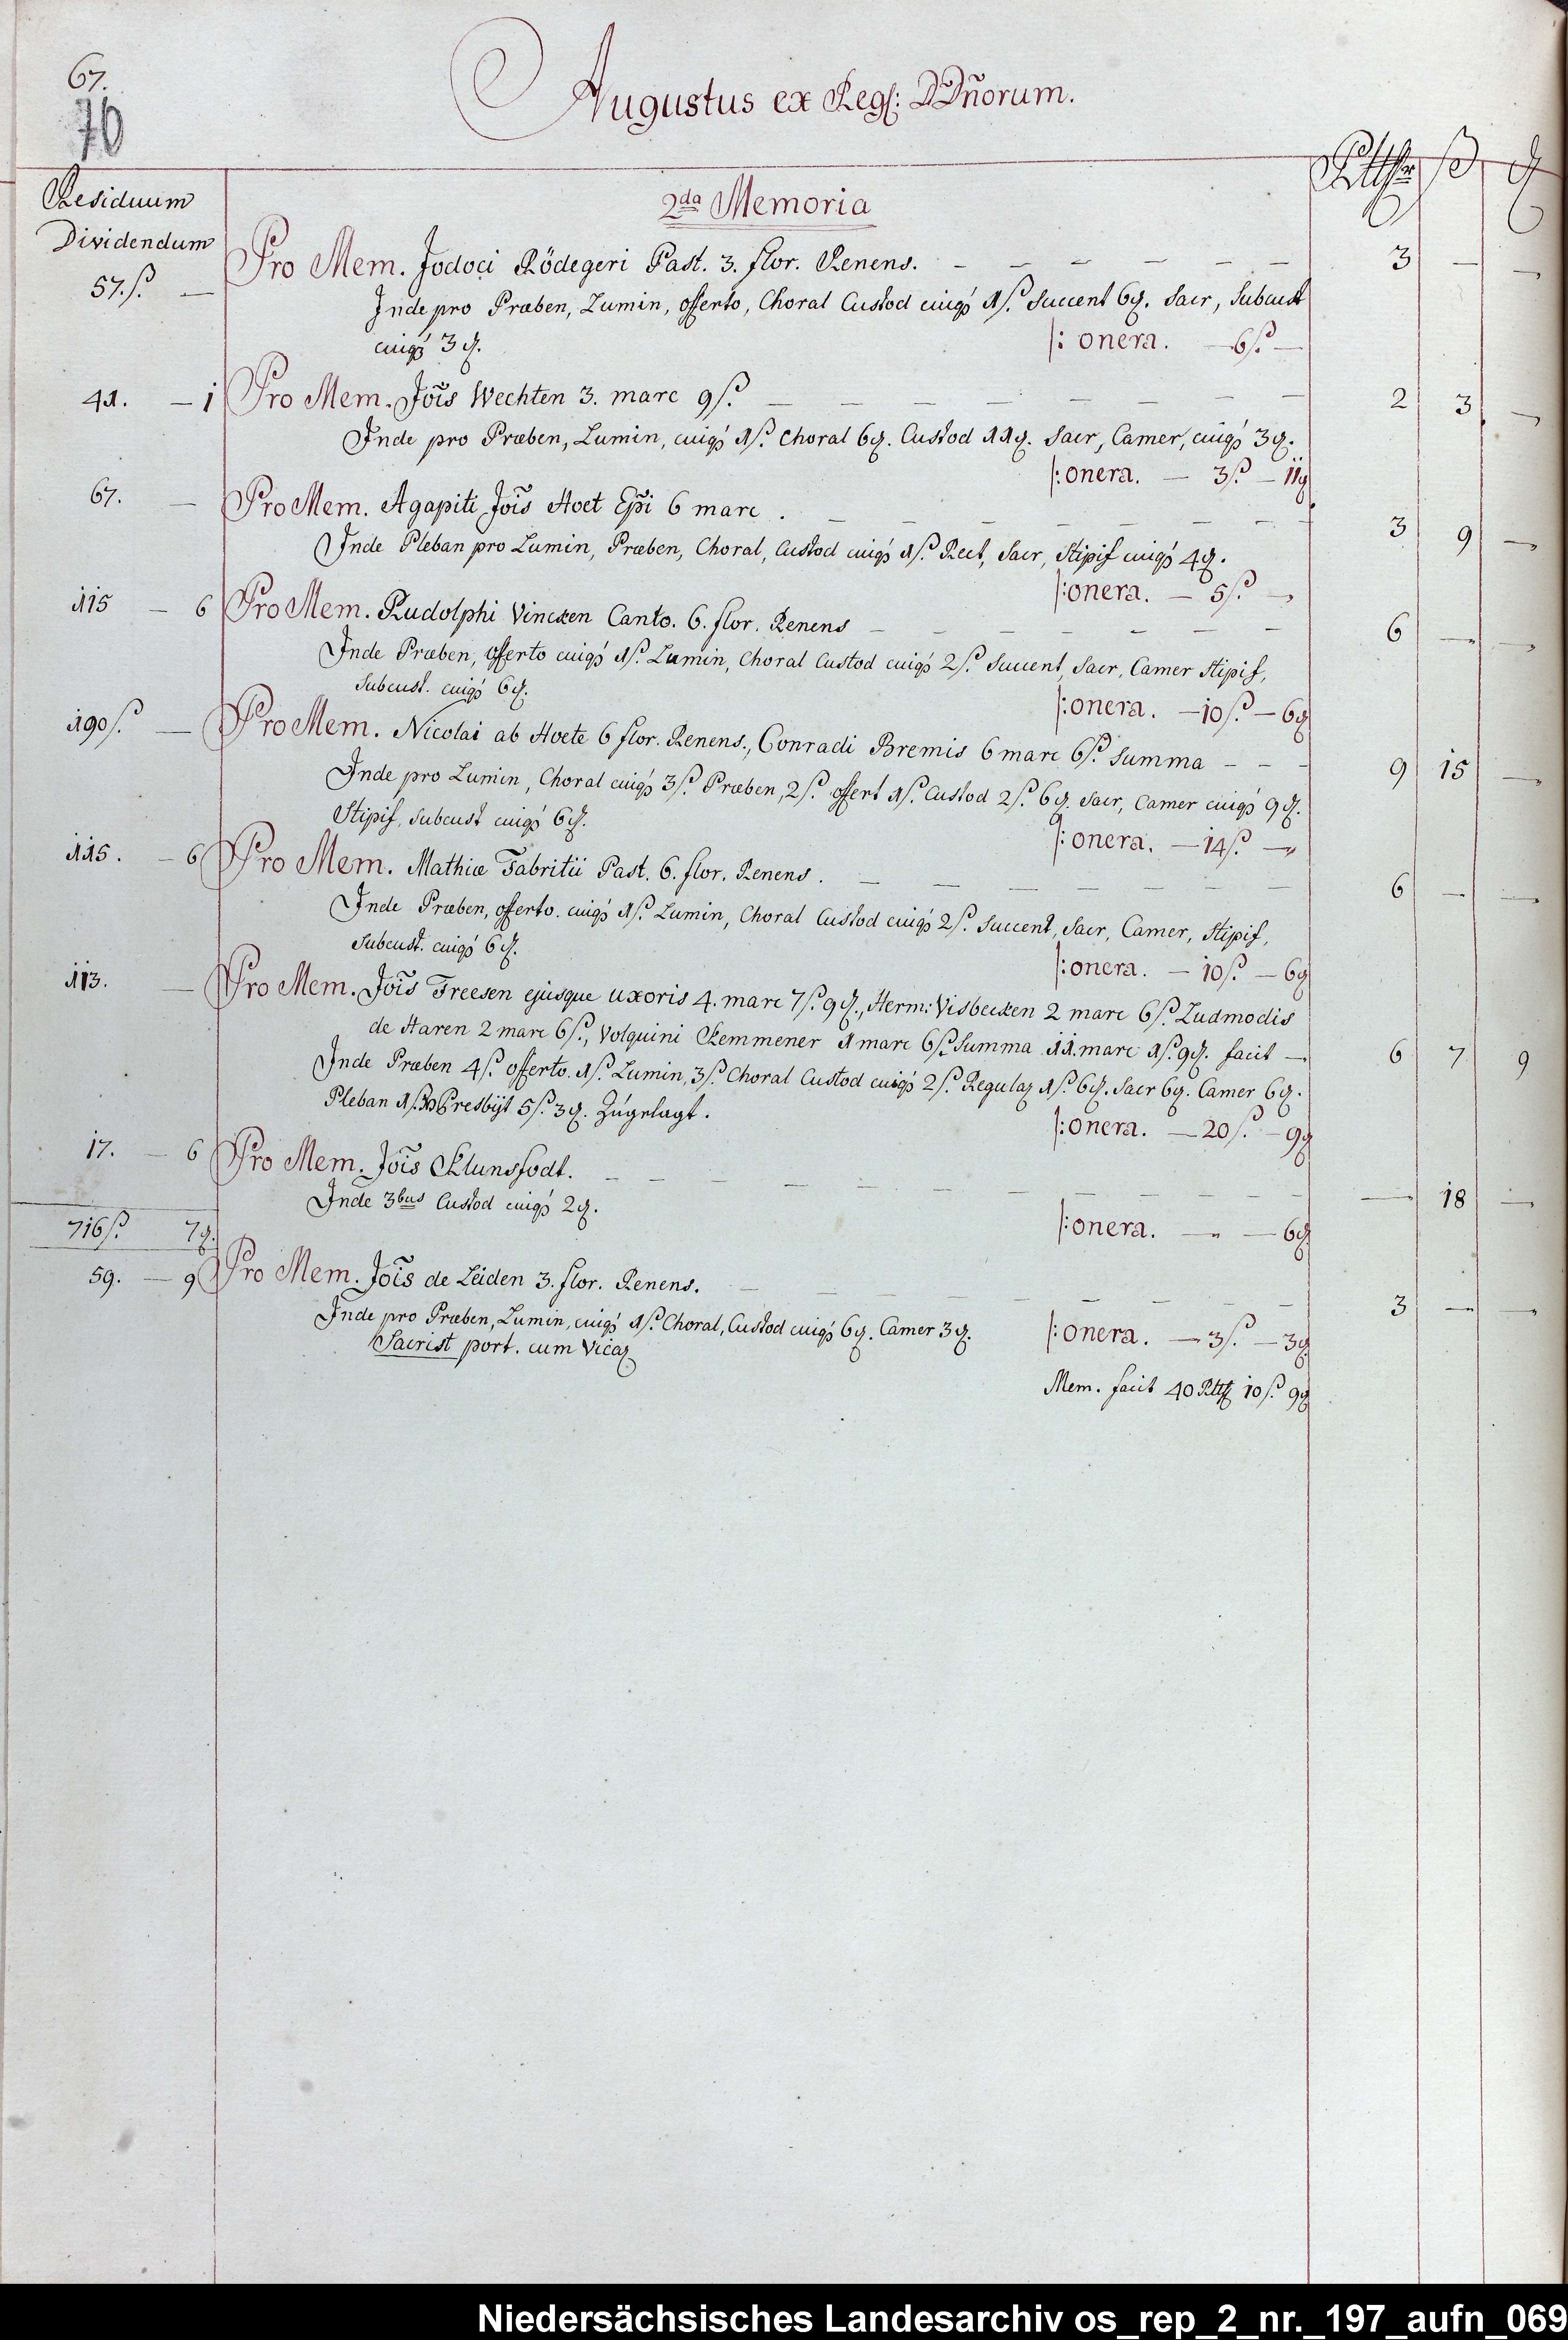 67.
76
Augustus ex Regs: DDnõrum.
Rtthlr ß ₰
Residuum
Dividendum
2da Memoria
57.ß. — Pro Mem. Jodoci Rödegeri Past. 3. flor. Renens. — — — — — — 3 — —
Inde pro Præben, Lumin, offerto, Choral Custod cuiqs 1ß. Succent 6₰. Sacr, Subcust
cuiqs 3₰. |: onera. — 6ß. —
41. — 1 Pro Mem. Jois Wechten 3. marc 9ß. — — — — — — — — 2 3 —
Inde pro Præben, Lumin, cuiqs 1ß. Choral 6₰. Custod 11₰. Sacr, Camer, cuiqs 3₰.
|: onera. — 3ß — 11₰
67. — Pro Mem. Agapiti Jois Hoet Epi 6 marc . — — — — — — — 3 9 —
Inde Pleban pro Lumin, Præben, Choral, Custod cuiqs 1ß. Rect, Sacr, Stipif cuiqs 4₰.
|: onera. — 5ß. —
115 — 6 Pro Mem. Rudolphi Vincken Canto. 6. flor. Renens — — — — — — — 6 — —
Inde Præben, offerto cuiqs 1ß. Lumin, Choral Custod cuiqs 2ß. Succent, Sacr, Camer Stipif,
Subcust. cuiqs 6₰. |: onera. — 10ß. — 6₰
190ß. — Pro Mem. Nicolai ab Hoete 6 flor. Renens., Conradi Bremis 6 marc 6ß. Summa — — — 9 15 —
Inde pro Lumin, Choral cuiqs 3ß. Præben, 2ß. offert 1ß. Custod 2ß. 6₰. Sacr, Camer cuiqs 9₰.
Stipif, Subcust cuiqs 6₰. |: onera. — 14ß. —
115. — 6 Pro Mem. Mathiæ Fabritii Past. 6. flor. Renens. — — — — — — — 6 — —
Inde Præben, offerto. cuiqs 1ß. Lumin, Choral Custod cuiqs 2ß. Succent, Sacr, Camer, Stipif,
Subcust. cuiqs 6₰. |: onera. — 10ß. — 6₰
113. — Pro Mem. Jois Freesen ejusque uxoris 4. marc 7ß. 9₰., Herm: Visbecken 2 marc 6ß. Ludmodis
de Haren 2 marc 6ß., Volquini Kemmener 1 marc 6ß. Summa 11. marc 1ß. 9₰. facit — 6 7 9
Inde Præben 4ß. offerto. 1ß. Lumin, 3ß. Choral Custod cuiqs 2ß. Regulaz 1ß. 6₰. Sacr 6₰. Camer 6₰.
Pleban 1ß. Presbijt 5ß. 3₰. Zugelagt. |: onera. — 20ß. — 9₰
17. — 6 Pro Mem. Jois Klunsfodt. — — — — — — — — — 18 —
Inde 3bus Custod cuiqs 2₰. |: onera. — — 6₰
716ß. 7₰.
59. — 9 Pro Mem. Jois de Leiden 3. flor. Renens. — — — — — — — — 3 — —
Inde pro Præben, Lumin, cuiqs 1ß. Choral, Custod cuiqs 6₰. Camer 3₰. |: onera. — 3ß. — 3₰.
Sacrist port. cum Vicaz
Mem. facit 40 Rtt 10ß. 9₰
Niedersächsisches Landesarchiv os_rep_2_nr._197_aufn_069